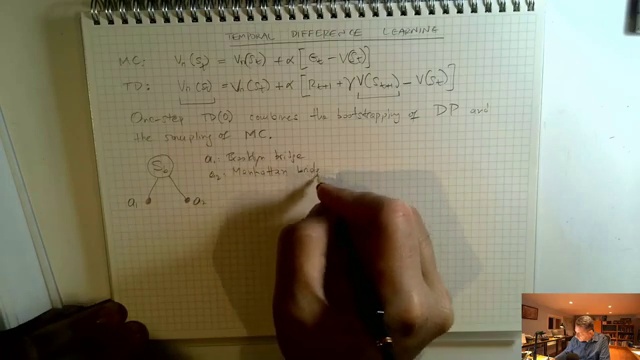 TEMPORAL DIFFERENCE LEARNING
MC: Vπ(St) = Vπ(St) + α [Gt − V(St)]
TD: Vπ(St) = Vπ(St) + α [Rt+1 + γV(St+1) − V(St)]
One-step TD(0) combines the bootstrapping of DP and
the sampling of MC.
St
a1 a2
a1: Brooklyn bridge
a2: Manhattan